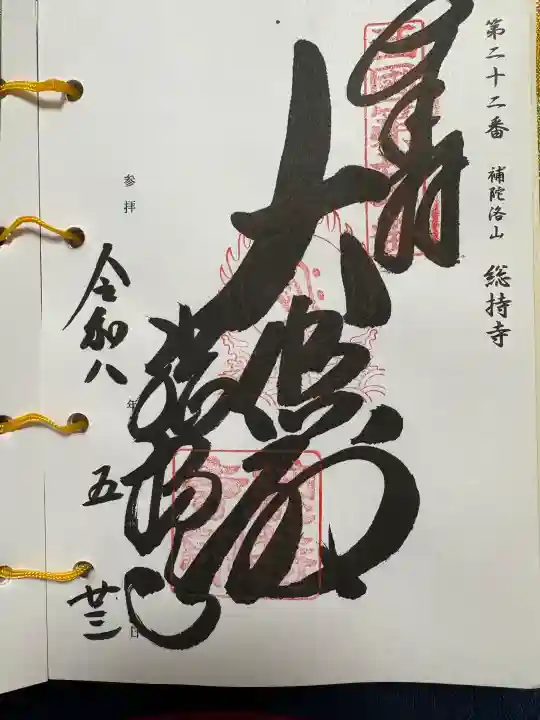 第二十二番 補陀洛山 総持寺
奉拝
大悲殿
総持寺
参拝
令和八年
五
廿三日